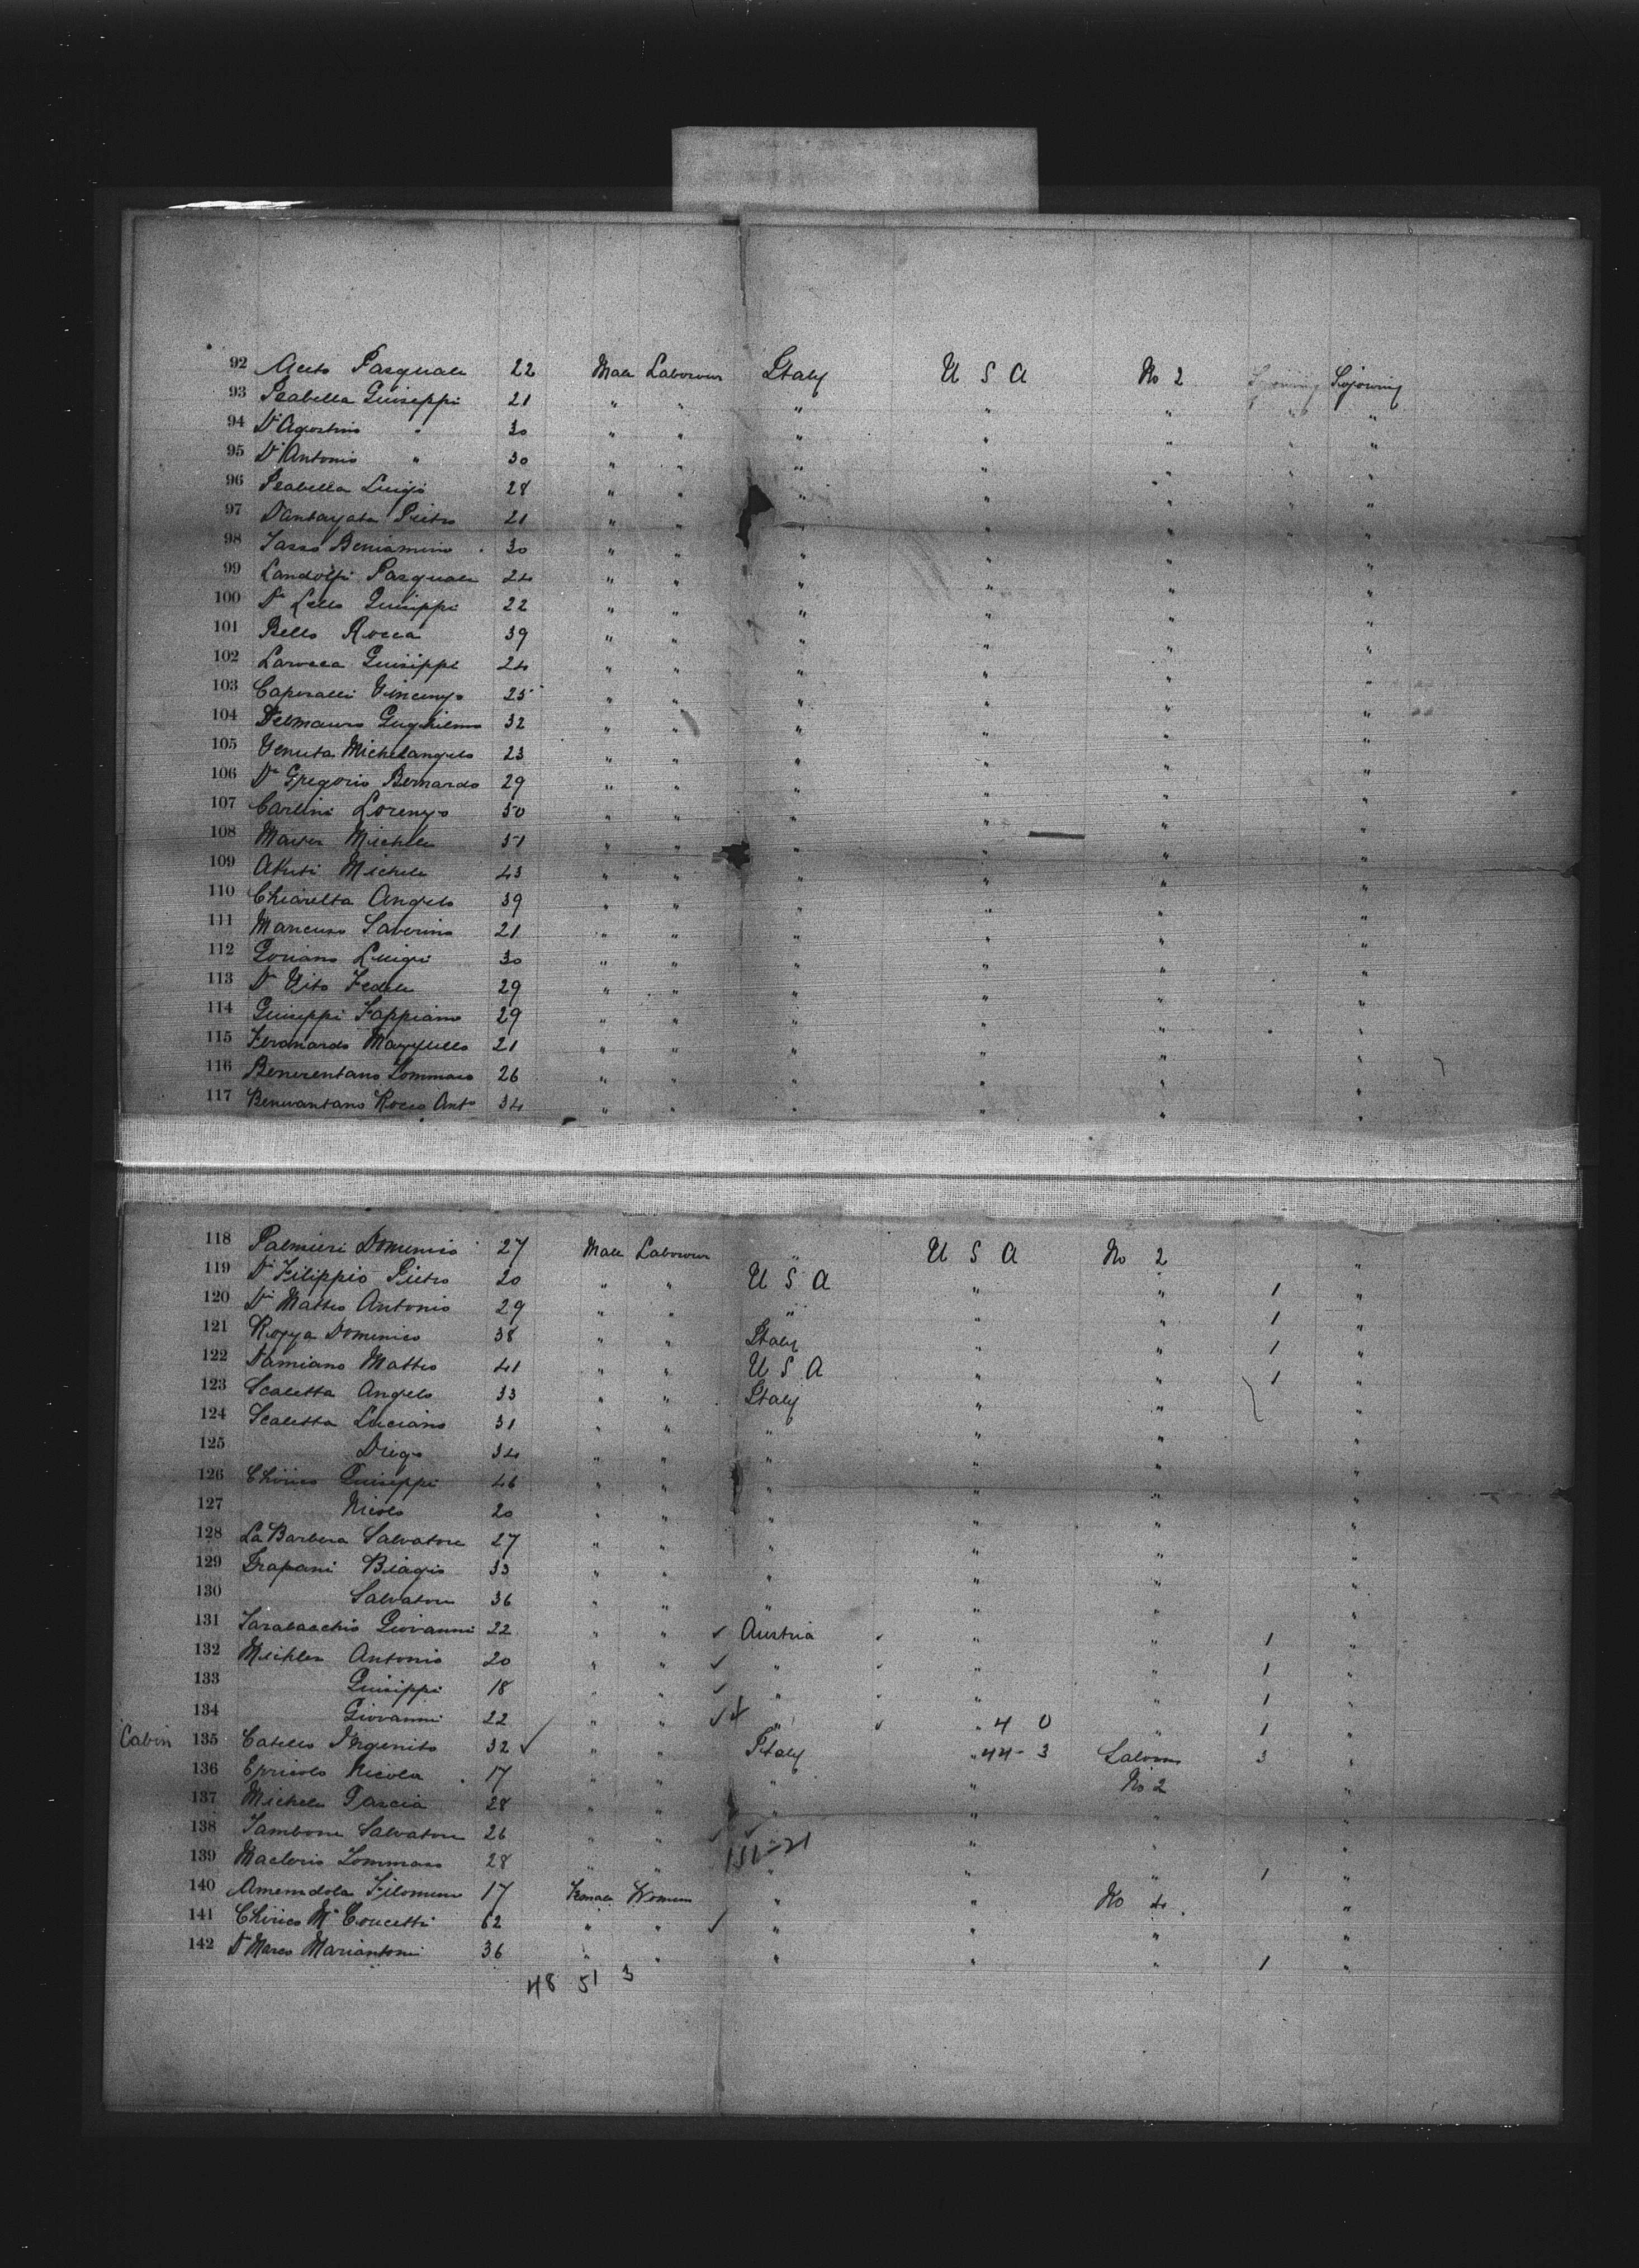 92 Aceto Pasquale 22 Male Labourer Italy U S A No 2 Sojourning Sojourning
93 Isabella Guiseppi 21 " " " " " " "
94 D'Agostino " 30 " " " " " " "
95 D'Antonio " 30 " " " " " " "
96 Isabella Luigi 28 " " " " " " "
97 Pietro 21 " " " " " " "
98 Sasso Beniamino 30 " " " " " "
99 Landolfi Pasquale 24 " " " " " "
100 De Lello Guiseppi 22 " " " " " "
101 Bello Rocca 39 " " " " " "
102 Larocca Guiseppe 24 " " " " " "
103 Vincenzo 25 " " " " " "
104 Delmauro Guglielmo 32 " " " " " "
105 Venuta Michelangelo 23 " " " " " "
106 De Gregorio Bernardo 29 " " " " " "
107 Carlini Lorenzo 50 " " " " " "
108 Michele 51 " " " " " "
109 Michele 43 " " " " " "
110 Chiaretta Angelo 39 " " " " " "
111 Mancuso Saverino 21 " " " " " "
112 Goriano Luigi 30 " " " " " "
113 De Vito Fedele 29 " " " " " "
114 Guiseppi Fappiano 29 " " " " " "
115 Mazzullo 21 " " " " " "
116 Beneventano Tommaso 26 " " " " " "
117 Benevantano Rocco Anto 34 " " " " " "
118 Palmieri Domenico 27 Male Labourer " U S A No 2 "
119 De Filippio Pietro 20 " " U S A " " 1 "
120 De Matteo Antonio 29 " " " " " 1 "
121 Domenico 38 " " Italy " " 1 "
122 Damiano Matteo 41 " " U S A " " 1 "
123 Scaletta Angelo 33 " " Italy " " "
124 Scaletta Luciano 31 " " " " " "
125 Diego 34 " " " " " "
126 Chirico Guiseppi 46 " " " " " "
127 Nicolo 20 " " " " " "
128 La Barbera Salvatore 27 " " " " " "
129 Trapani Biagio 33 " " " " " "
130 Salvatore 36 " " " " " "
131 Giovanni 22 " " ✓ Austria ✓ " " 1 "
132 Antonio 20 " " ✓ " ✓ " " 1 "
133 Guiseppi 18 " " ✓ " ✓ " " 1 "
134 Giovanni 22 " " ✓ ✓ " ✓ " 4 0 " 1 "
Cabin 135 Catello Ingenito 32 ✓ " " Italy " 44-3 Saloon 3 "
136 Nicola 17 " " " " No 2 "
137 Michele Pascia 28 " " " " "
138 Tambone Salvatore 26 " " " " " "
139 Tommaso 28 " " " " " 1 "
140 Amendola Filomena 17 Female Woman " " No 4 "
141 Chirico Ma Concetti 62 " " ✓ " " " "
142 De Marco Mariantoni 36 " " " " " 1 "
48 51 3